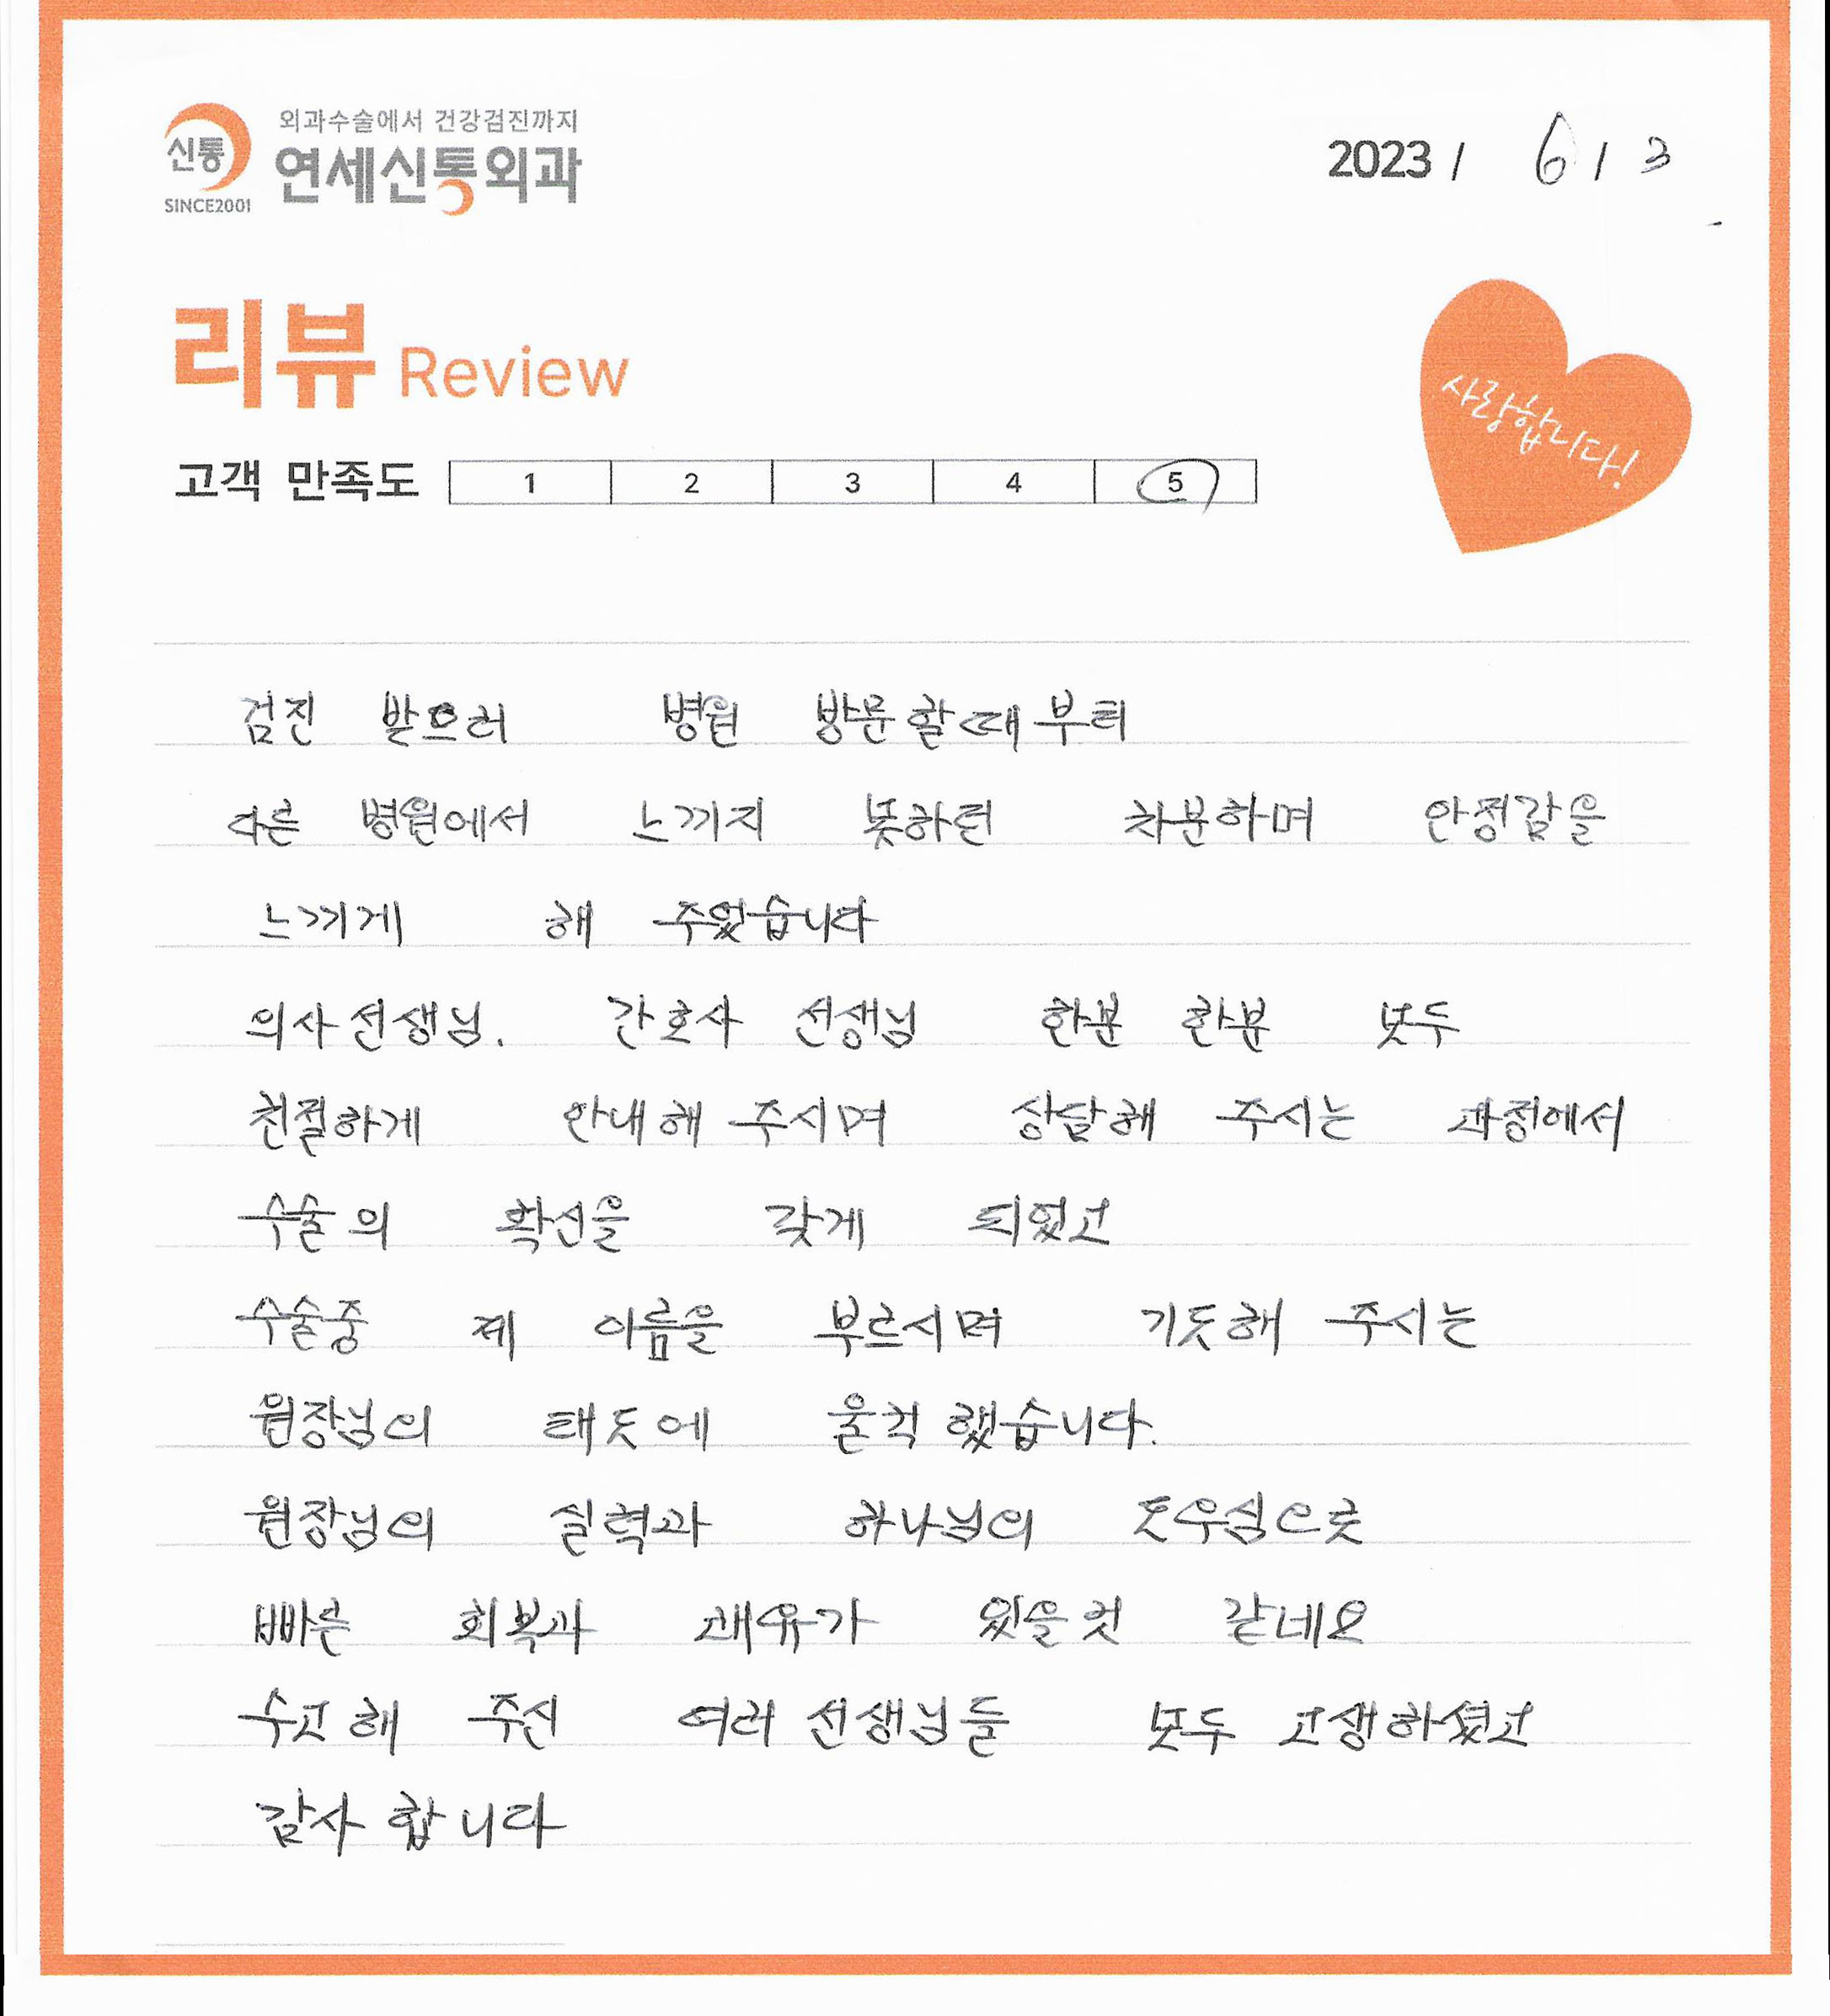 신통
SINCE2001
외과수술에서 건강검진까지
연세신통외과
2023 / 6 / 3
리뷰 Review
사랑합니다!
고객 만족도 1 2 3 4 5
검진 받으러 병원 방문할때부터
다른 병원에서 느끼지 못하던 차분하며 안정감을
느끼게 해 주었습니다
의사선생님. 간호사 선생님 한분 한분 모두
친절하게 안내해 주시며 상담해 주시는 과정에서
수술의 확신을 갖게 되었고
수술중 제 이름을 부르시며 기도해 주시는
원장님의 태도에 울컥 했습니다.
원장님의 실력과 하나님의 도우심으로
빠른 회복과 쾌유가 있을것 같네요
수고해 주신 여러 선생님들 모두 고생하셨고
감사 합니다